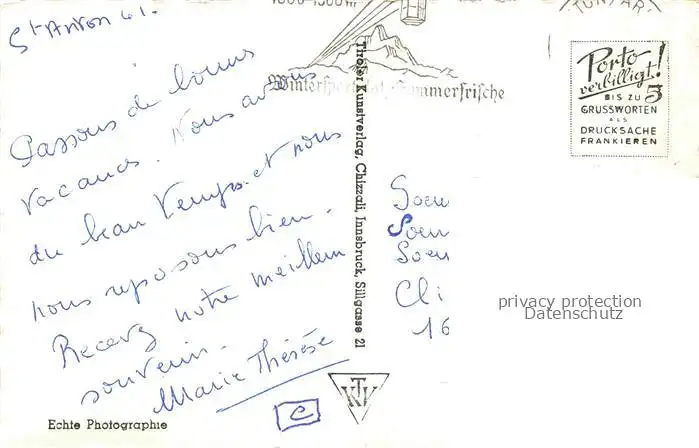 St Anton 61.
Passons de bonnes
vacances. Nous avons
du beau temps et nous
nous reposons bien.
Recevez notre meilleur
souvenir.
Marie Thérèse
C
Echte Photographie
1000-1300 m
Wintersport Sommerfrische
Tiroler Kunstverlag, Chizzali, Innsbruck, Sillgasse 21
KTV
Porto
verbilligt!
BIS ZU 5
GRUSSWORTEN
ALS
DRUCKSACHE
FRANKIEREN
Soeu
Soeu
Soeu
Cli
16
privacy protection
Datenschutz